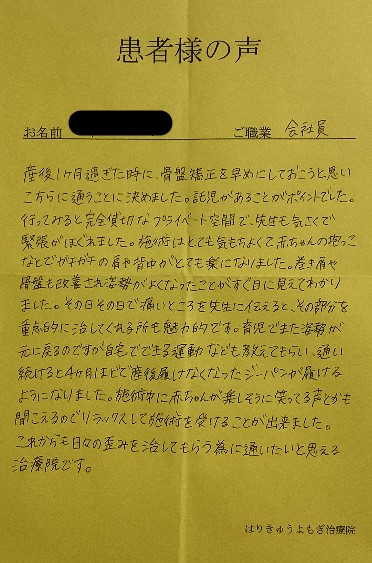 患者様の声
お名前
ご職業 会社員
産後1ヶ月過ぎた時に、骨盤矯正を早めにしておこうと思い
こちらに通うことに決めました。託児があることがポイントでした。
行ってみると完全貸切なプライベート空間で、先生も気さくで
緊張がほぐれました。施術はとても気もちよくて赤ちゃんの抱っこ
などでガチガチの肩や背中がとても楽になりました。巻き肩や
骨盤も改善され姿勢がよくなったことがすぐ目に見えてわかり
ました。その日その日で痛いところを先生に伝えると、その部分を
重点的に治してくれる所も魅力的です。育児でまた姿勢が
元に戻るのですが自宅でできる運動なども教えてもらい、通い
続けると4ヶ月ほどで産後履けなくなったジーパンが履ける
ようになりました。施術中に赤ちゃんが楽しそうに笑ってる声とかも
聞こえるのでリラックスして施術を受けることが出来ました。
これからも日々の歪みを治してもらう為に通いたいと思える
治療院です。
はりきゅうよもぎ治療院